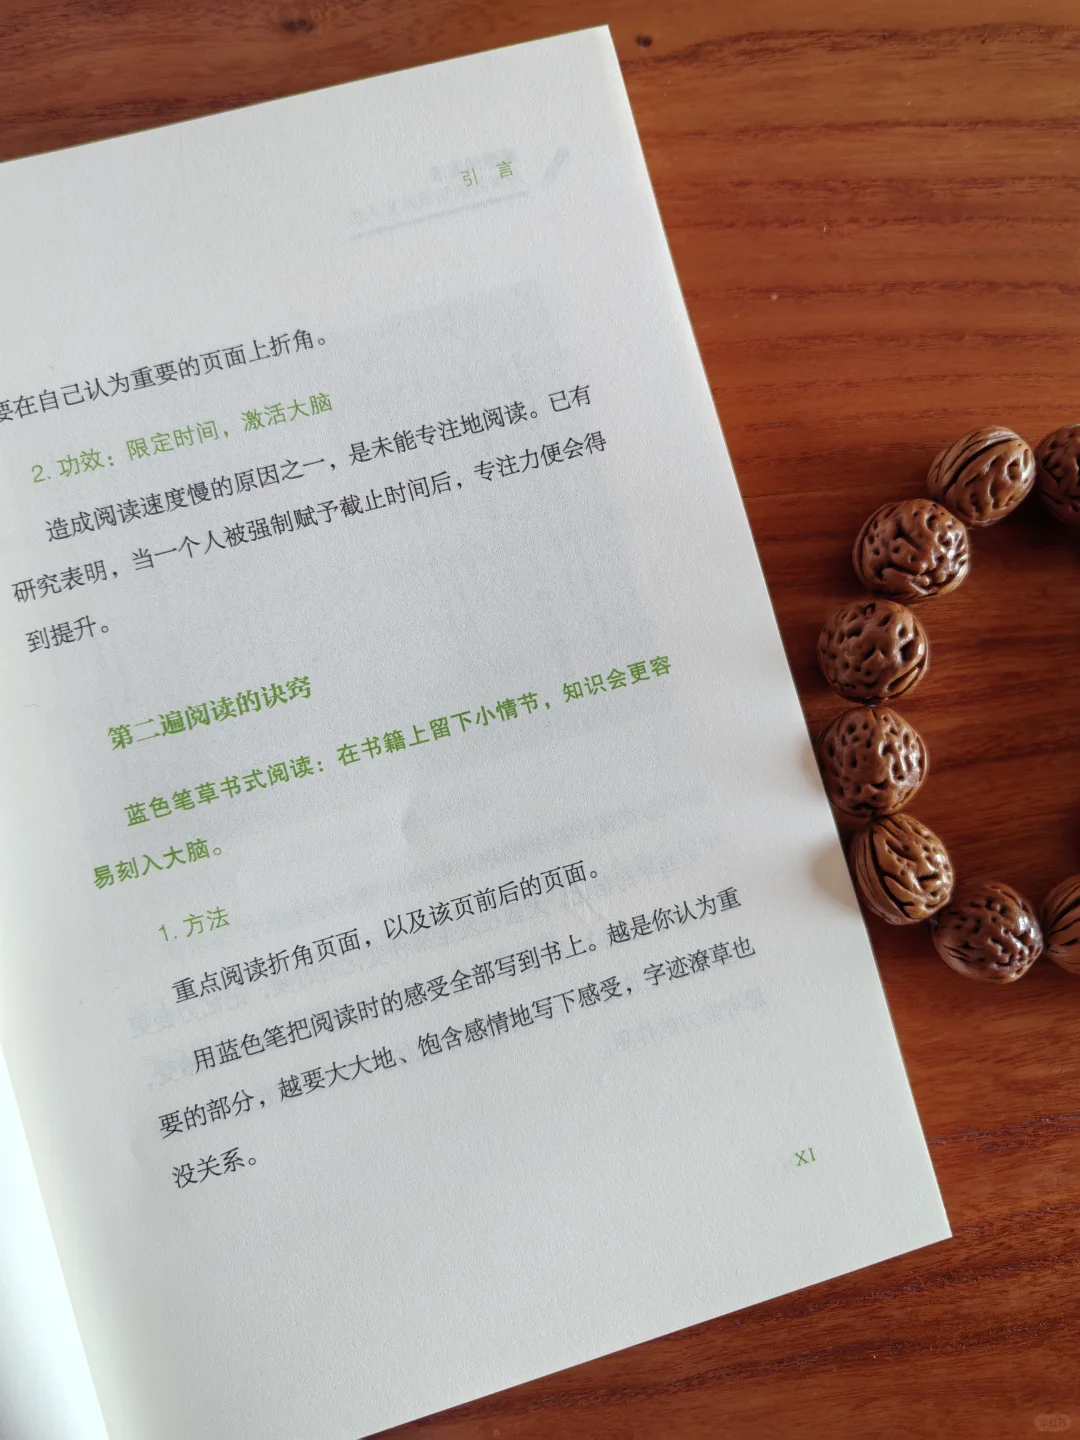 引言
要在自己认为重要的页面上折角。
2. 功效：限定时间，激活大脑
造成阅读速度慢的原因之一，是未能专注地阅读。已有
研究表明，当一个人被强制赋予截止时间后，专注力便会得
到提升。
第二遍阅读的诀窍
蓝色笔草书式阅读：在书籍上留下小情节，知识会更容
易刻入大脑。
1. 方法
重点阅读折角页面，以及该页前后的页面。
用蓝色笔把阅读时的感受全部写到书上。越是你认为重
要的部分，越要大大地、饱含感情地写下感受，字迹潦草也
没关系。
XI
小红书